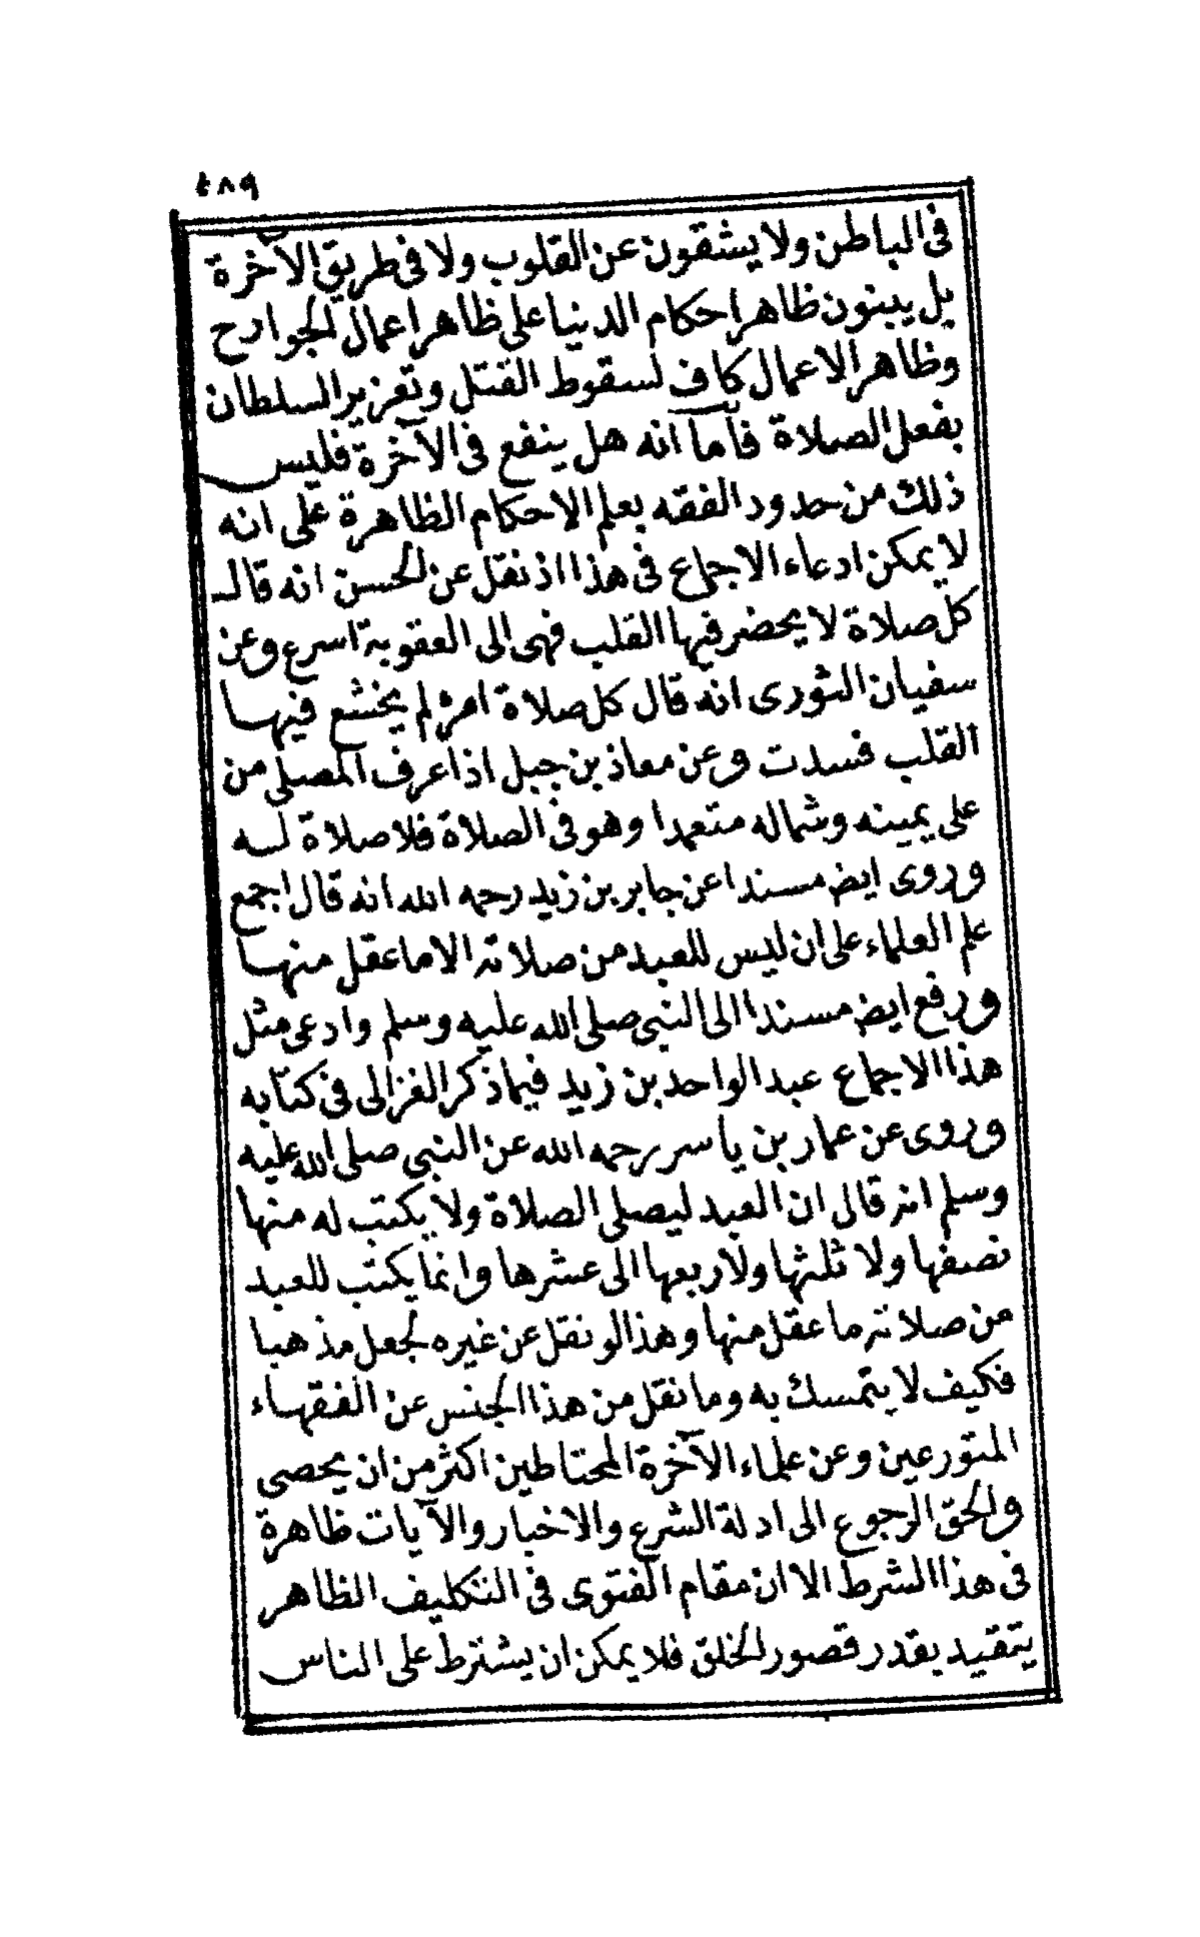 ٤٨٩
فى الباطن ولا يشقون عن القلوب ولا فى طريق الآخرة
بل يبنون ظاهر احكام الدنيا على ظاهر اعمال الجوارح
وظاهر الاعمال كاف لسقوط القتل وتعزير السلطان
بفعل الصلاة فأما انه هل ينفع فى الآخرة فليس
ذلك من حدود الفقه بعلم الاحكام الظاهرة على انه
لا يمكن ادعاء الاجماع فى هذا اذ نقل عن الحسن انه قال
كل صلاة لا يحضر فيها القلب فهى الى العقوبة اسرع وعن
سفيان الثورى انه قال كل صلاة امرؤ لم يخشع فيها
القلب فسدت وعن معاذ بن جبل اذا عرف المصلى من
على يمينه وشماله متعمدا وهو فى الصلاة فلا صلاة له
وروى ايض مسندا عن جابر بن زيد رحمه الله انه قال اجمع
علم العلماء على ان ليس للعبد من صلاته الا ما عقل منها
ورفع ايض مسندا الى النبى صلى الله عليه وسلم وادعى مثل
هذا الاجماع عبد الواحد بن زيد فيما ذكر الغزالى فى كتابه
وروى عن عمار بن ياسر رحمه الله عن النبى صلى الله عليه
وسلم انه قال ان العبد ليصلى الصلاة ولا يكتب له منها
نصفها ولا ثلثها ولا ربعها الى عشرها وانما يكتب للعبد
من صلاته ما عقل منها وهذا لو نقل عن غيره لجعل مذهبا
فكيف لا يتمسك به وما نقل من هذا الجنس عن الفقهاء
المتورعين وعن علماء الآخرة المحتاطين اكثر من ان يحصى
والحق الرجوع الى ادلة الشرع والاخبار والآيات ظاهرة
فى هذا الشرط الا ان مقام الفتوى فى التكليف الظاهر
يتقيد بقدر قصور الخلق فلا يمكن ان يشترط على الناس